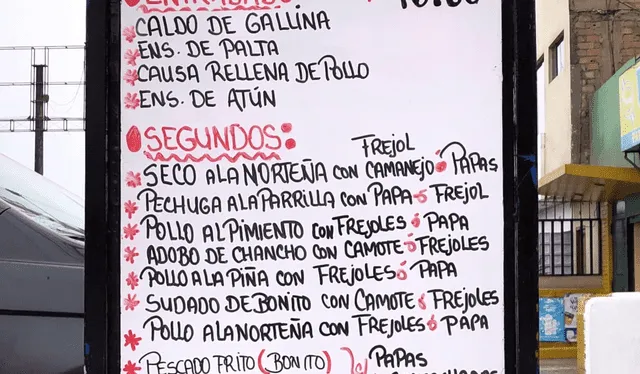 CALDO DE GALLINA
ENS. DE PALTA
CAUSA RELLENA DE POLLO
ENS. DE ATÚN
SEGUNDOS:
FREJOL
SECO A LA NORTEÑA CON CAMANEJO ó PAPAS
PECHUGA A LA PARRILLA CON PAPA ó FREJOL
POLLO AL PIMIENTO CON FREJOLES ó PAPA
ADOBO DE CHANCHO CON CAMOTE ó FREJOLES
POLLO A LA PIÑA CON FREJOLES ó PAPA
SUDADO DE BONITO CON CAMOTE ó FREJOLES
POLLO A LA NORTEÑA CON FREJOLES ó PAPA
PESCADO FRITO (BONITO) PAPAS